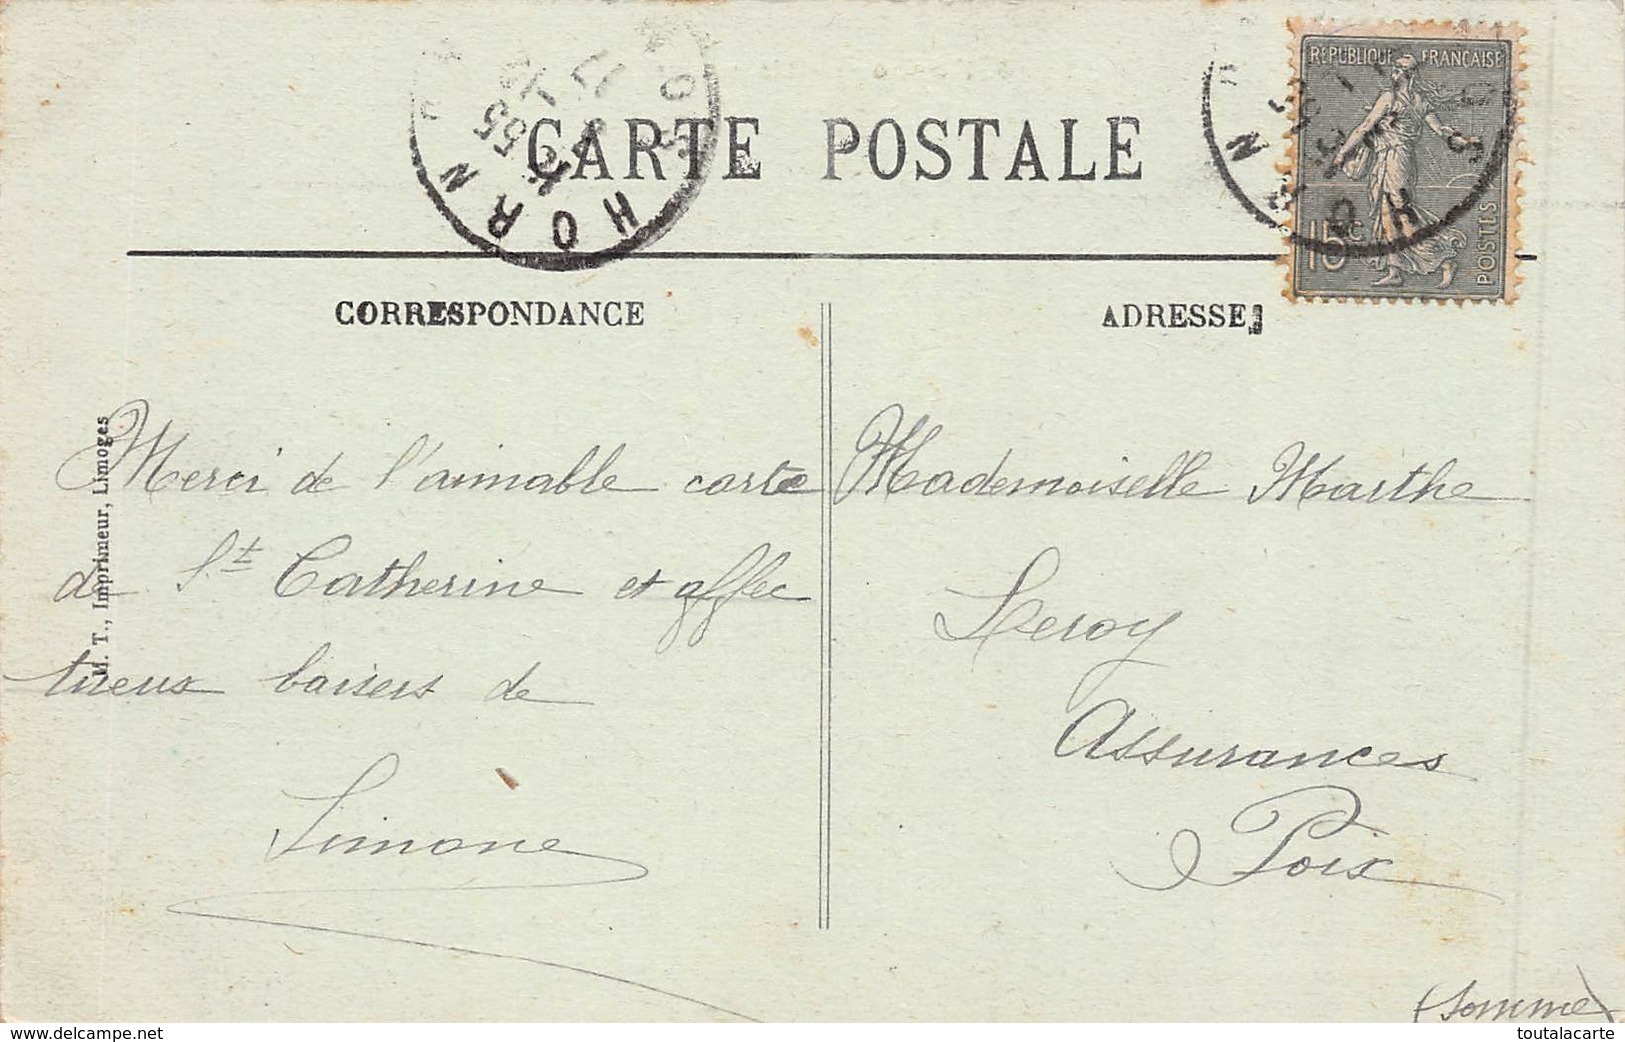 CARTE POSTALE
RÉPUBLIQUE FRANÇAISE
15c
POSTES
HORN
CORRESPONDANCE
ADRESSE
M. T., Imprimeur, Limoges
Merci de l'aimable carte
de St Catherine et affec
tueux baisers de
Simone
Mademoiselle Marthe
Leroy
Assurances
Poix
(Somme)
www.delcampe.net
toutalacarte